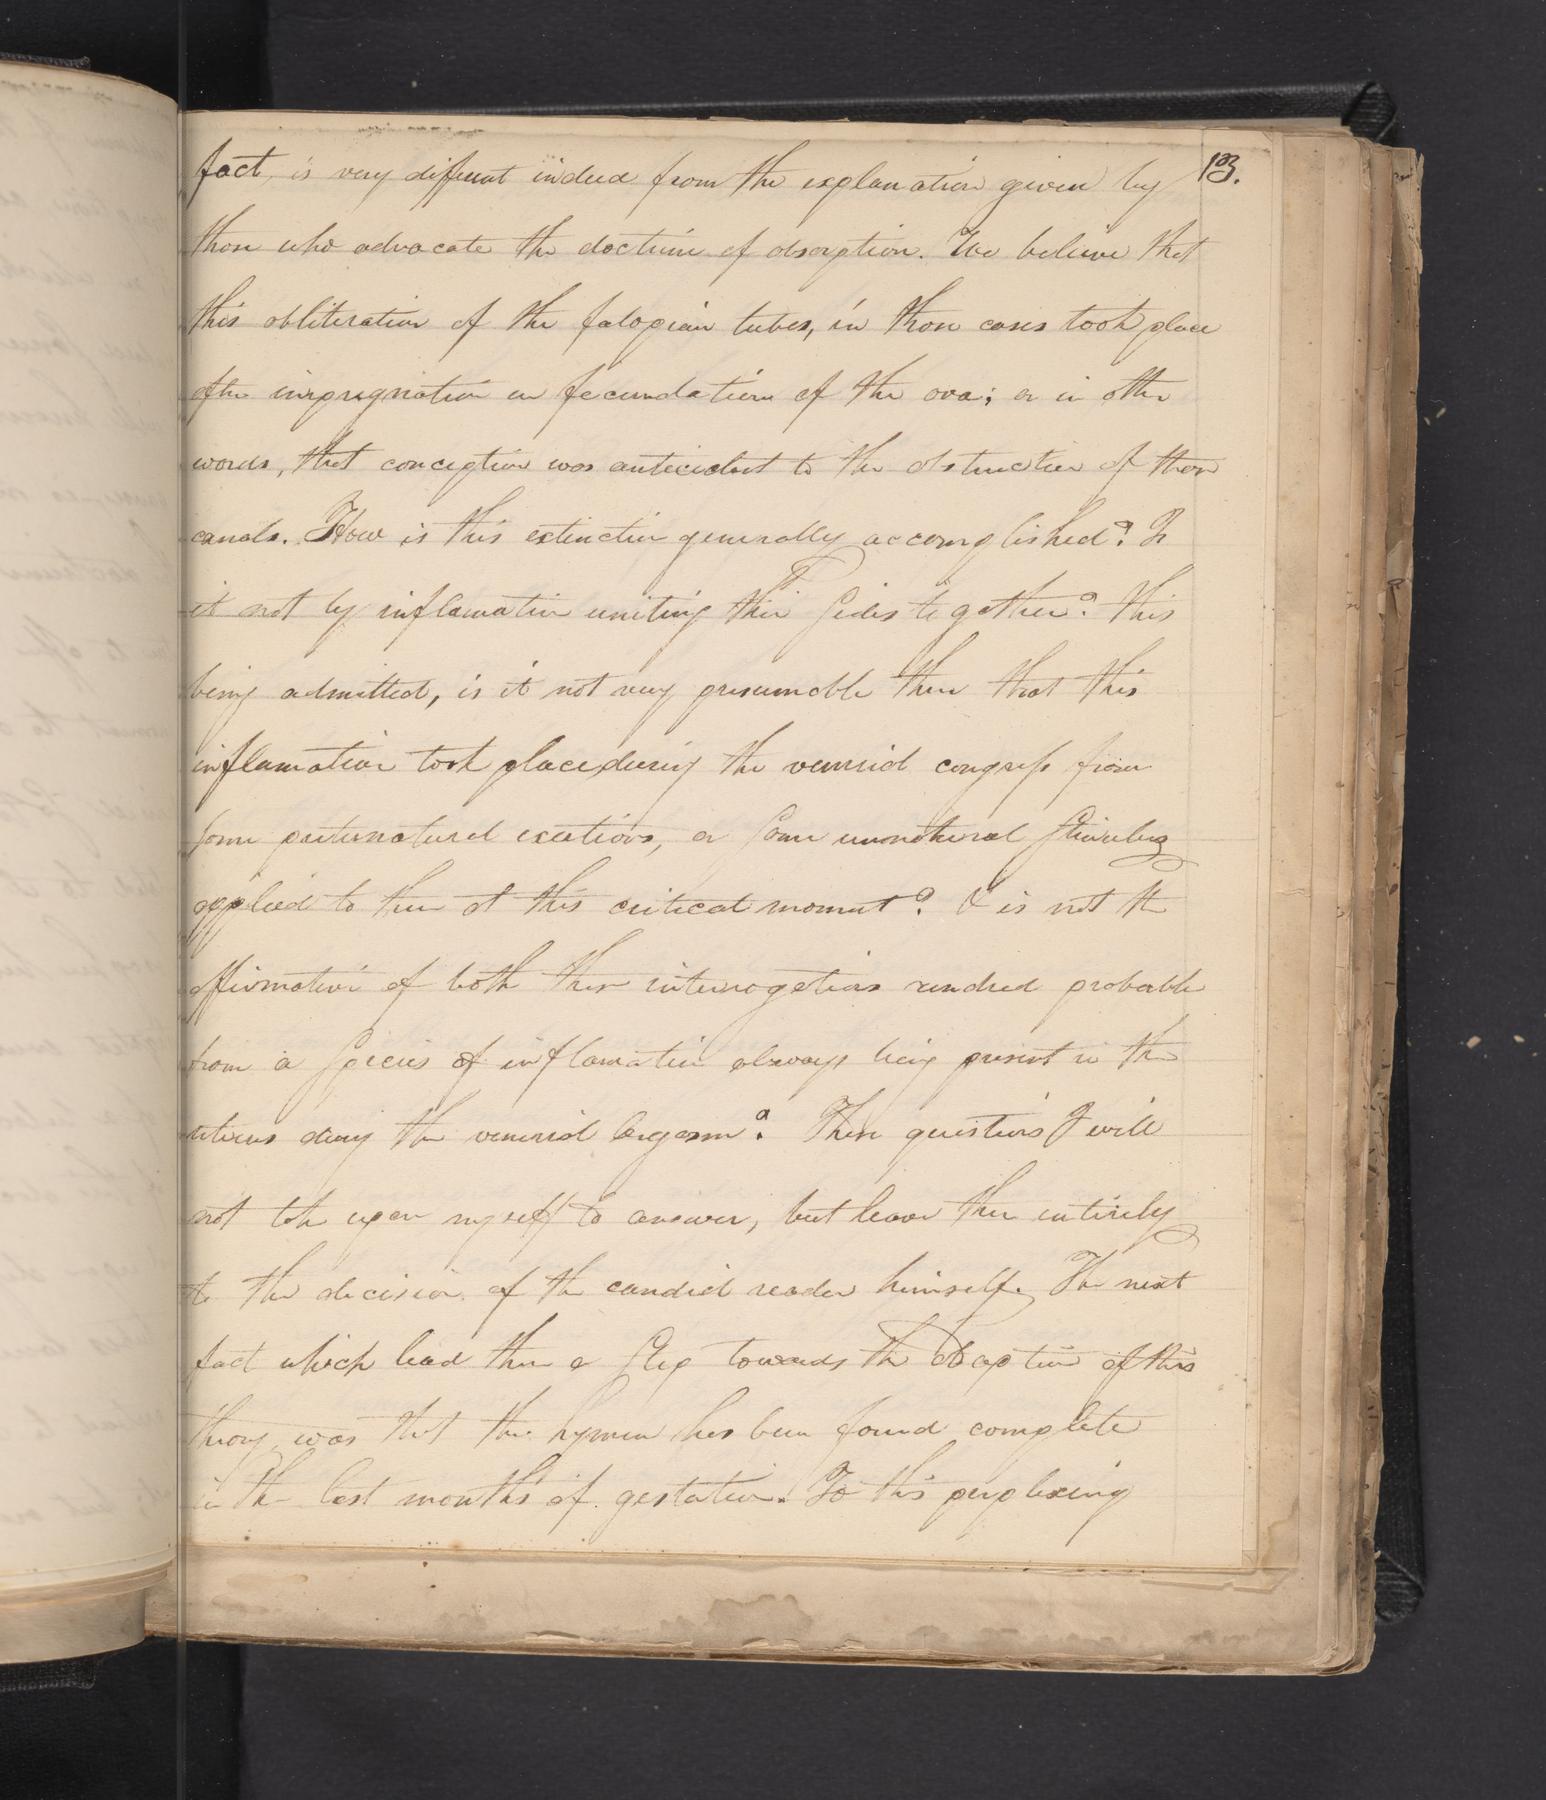 13.
fact, is very different indeed from the explanation given by
those who advocate the doctrine of absorption. We believe that
this obliteration of the falopian tubes, in those cases took place
after impregnation or fecundation of the ova; or in other
words, that conception was antecedent to the obstruction of those
canals. How is this extinction generally accomplished? Is
it not by inflamation uniting their sides together? This
being admitted, is it not very presumable then that this
inflamation took place during the venerial congress from
some preternatural exertions, or some unnatural stimulus
applied to them at this critical moment? & is not the
affirmative of both these interrogations rendred probable
from a species of inflamation always being present in the
uterus during the venerial orgasm? These questions I will
not take upon myself to answer, but leave them entirely
to the decision of the candid reader himself. The next
fact which lead them a step towards the adoption of this
theory, was that the hymen has been found complete
in the last months of gestation. To this perplexing